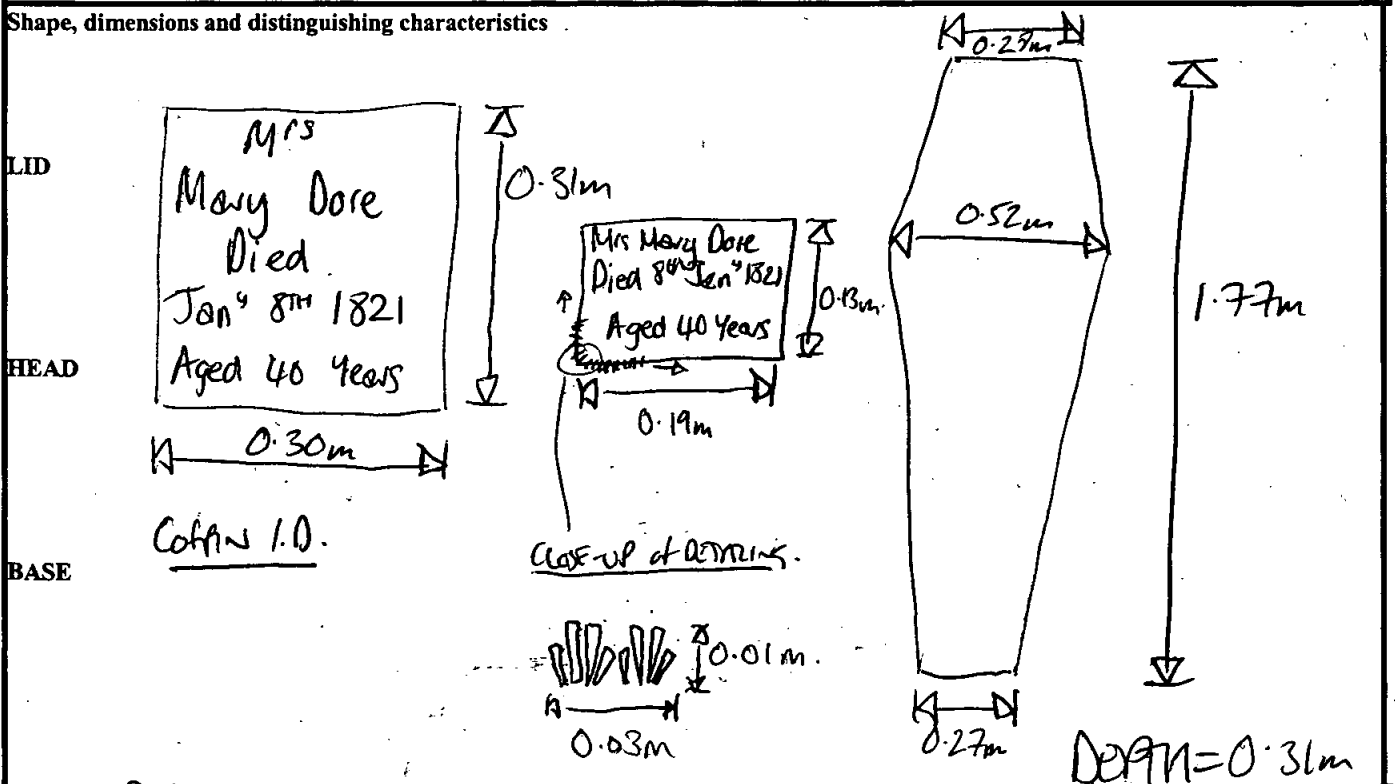 Shape, dimensions and distinguishing characteristics
LID
HEAD
BASE
Mrs
Mary Dore
Died
Janʸ 8TH 1821
Aged 40 Years
0.31m
0.30m
COFFIN I.D.
Mrs Mary Dore
Died 8th Janʸ 1821
Aged 40 Years
0.13m
0.19m
CLOSE-UP of DETAILING.
0.01m.
0.03m
0.52m
1.77m
0.27m
DEPTH = 0.31m